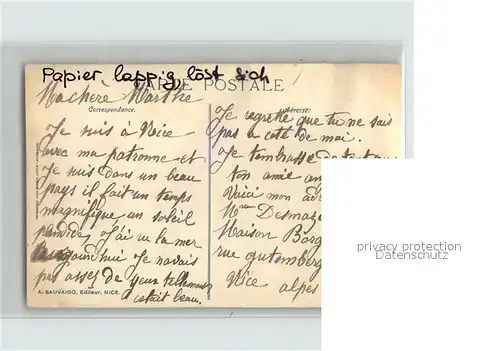 Papier lappig löst sich
CARTE POSTALE
Machère Marthe
Correspondance.
Je suis à Nice
avec ma patronne et
Je suis dans un beau
pays il fait un temps
magnifique un soleil
J'ai vu la mer
aujourd'hui Je navais
pas assez de yeux tellement
cetait beau.
A. SAUVAIGO, Editeur, NICE.
Adresse.
Je regrette que tu ne sais
pas a coté de moi.
Je tembrasse de tout
ton amie
Voici mon
Mme
Maison
rue gutemberg
Nice alpes
privacy protection
Datenschutz